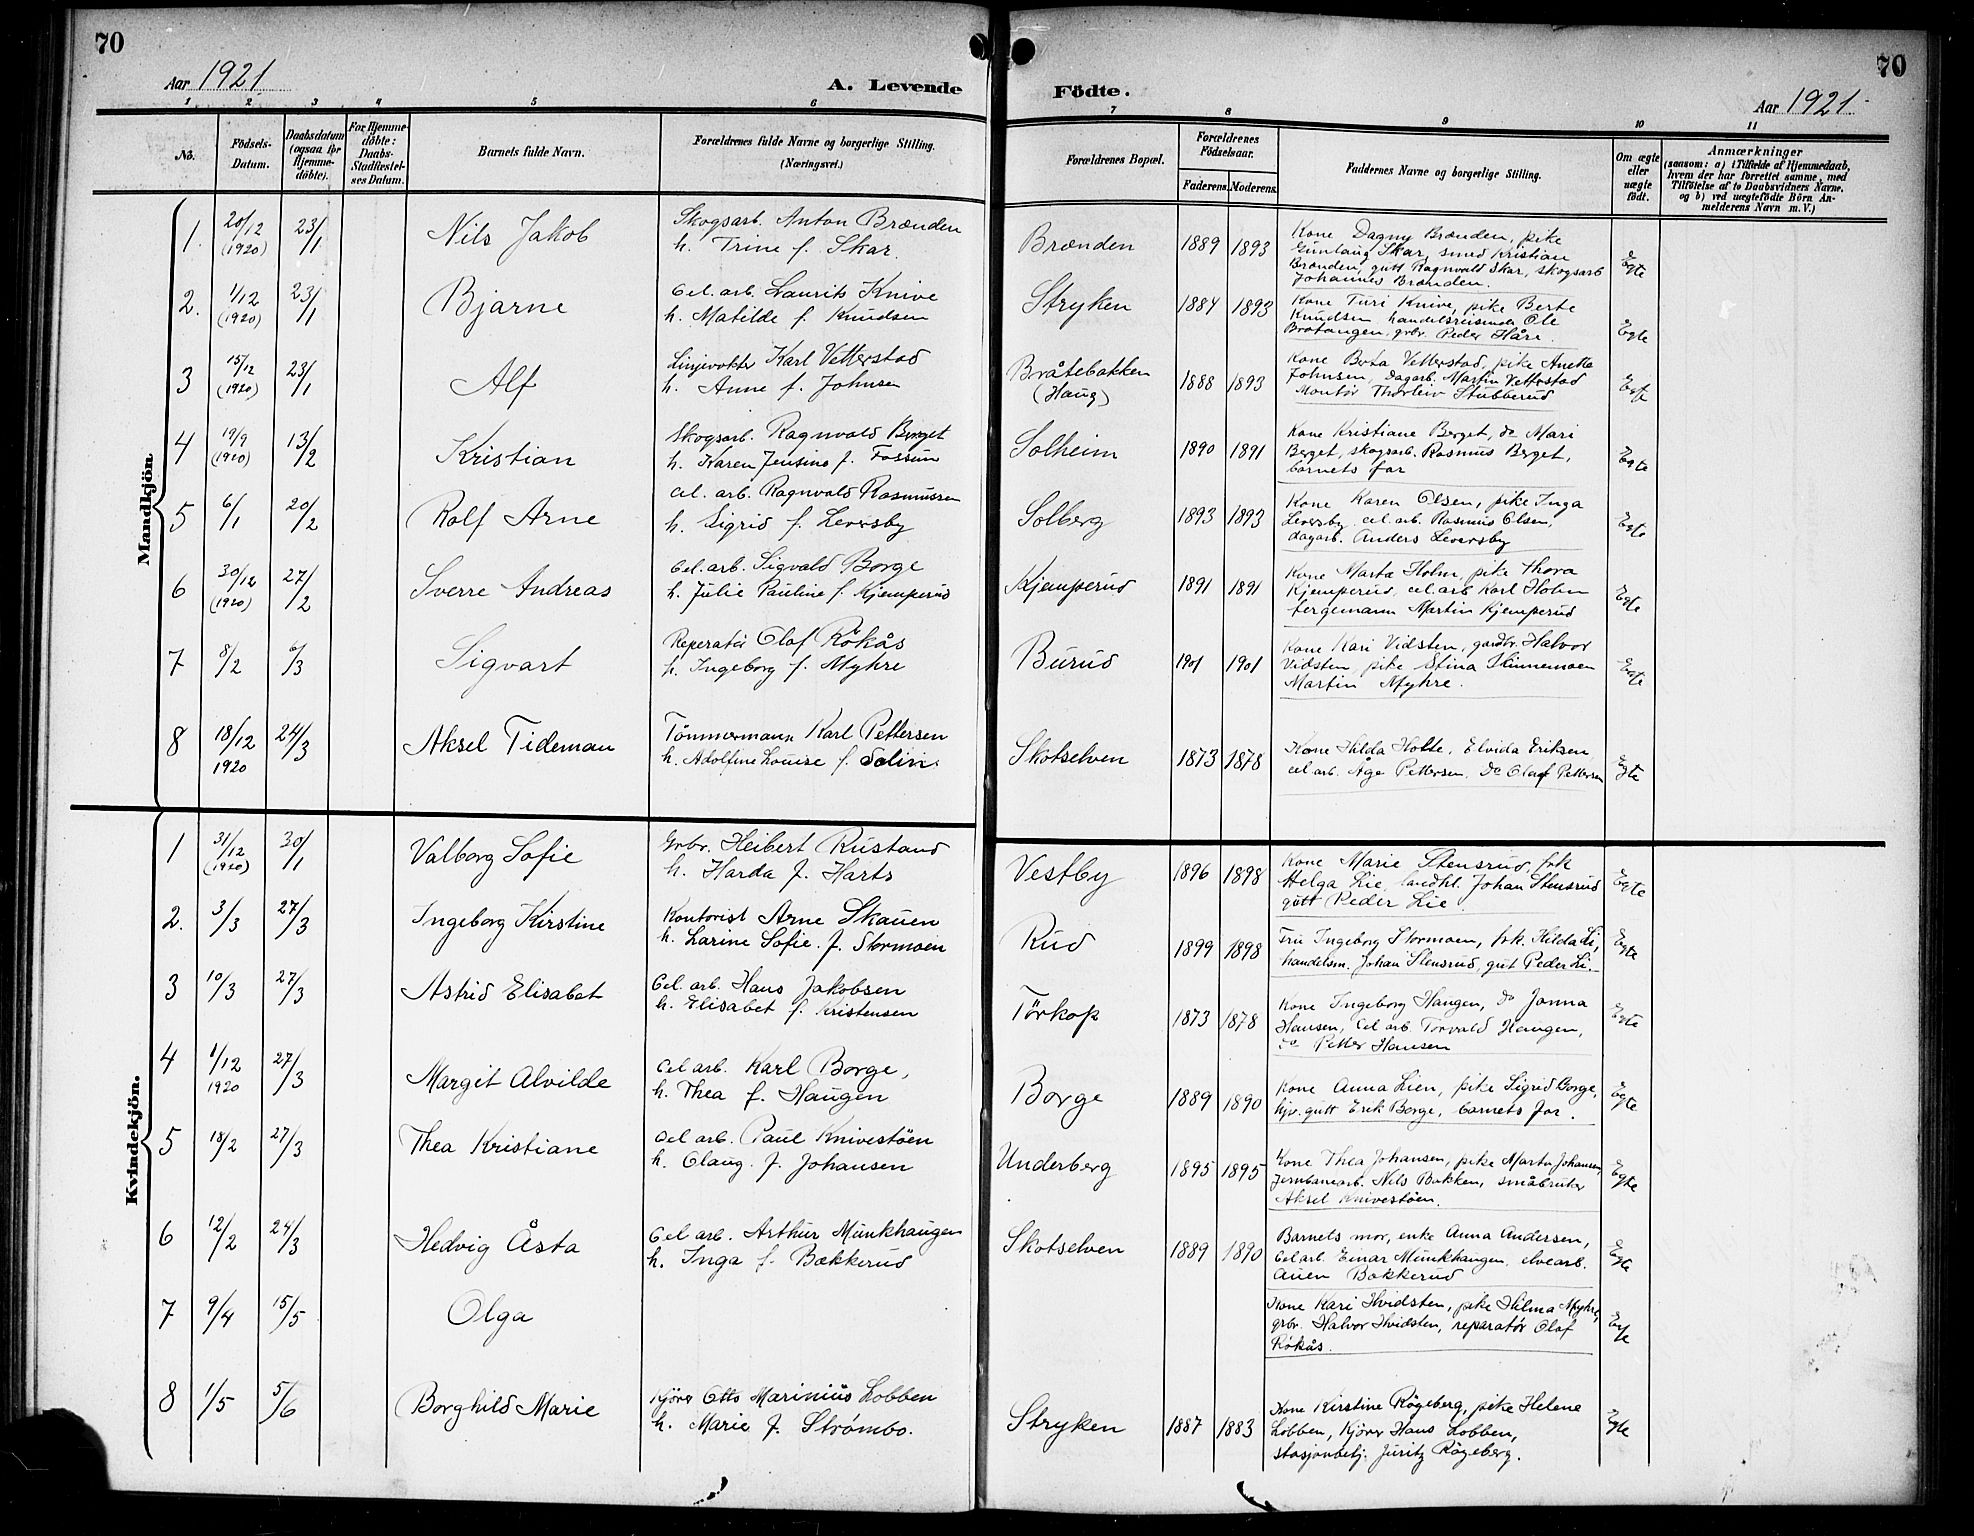 70
Aar 1921.
A. Levende
Födte.
70
Aar 1921.
1 2 3 4 5 6 7 8 9 10 11
No.
Födsels-
Datum.
Daabsdatum
(ogsaa for
Hjemme-
döbte).
For Hjemme-
döbte:
Daabs-
Stadfæstel-
ses Datum.
Barnets fulde Navn.
Forældrenes fulde Navne og borgerlige Stilling.
(Næringsvei.)
Forældrenes Bopæl.
Forældrenes
Födselsaar.
Faderens. Moderens.
Faddernes Navne og borgerlige Stilling.
Om ægte
eller
uægte
födt.
Anmærkninger
(saasom: a) i Tilfælde af Hjemmedaab,
hvem der har forrettet samme, med
Tilföielse af to Daabsvidners Navne.
og b) ved uægtefödte Börn An-
melderens Navn m. V.)
Mandkjön
1. 20/12 (1920) 23/1 Nils Jakob
Skogsarb. Anton Brænden
h. Trine f. Skar.
Brænden 1889 1893
Kone Dagny Brænden, pike
Gunlaug Skar, smed Kristian
Brænden, gutt Ragnvald Skar, skogsarb
Johannes Brænden.
Egte
2. 1/12 (1920) 23/1 Bjarne
Cel. arb. Laurits Knive
h. Matilde f. Knudsen
Stryken 1884 1893
Kone Turi Knive, pike Berte
Knudsen handelsreisende Ole
Bratangen, grbr. Peder Håre.
Egte
3 15/12 (1920) 23/1 Alf
Linjevokter Karl Vetterstad
h. Anne f. Johnsen
Bråtebakken
(Haug)
1888 1893
Kone Berta Vetterstad, pike Anette
Johnsen, dagarb. Martin Vetterstad
Montör Thorleiv Stubberud
Egte
4 19/9 (1920) 13/2 Kristian
Skogsarb. Ragnvald Berget
h. Karen Jensine f. Fossum
Solheim 1890 1891
Kone Kristiane Berget, do Mari
Berget, skogsarb. Rasmus Berget,
barnets far
Egte
5 6/1 20/2 Rolf Arne
Cel. arb. Ragnvald Rasmussen
h. Sigrid f. Leversby
Solberg 1893 1893
Kone Karen Olsen, pike Inga
Leversby cel. arb. Rasmus Olsen,
dagarb. Anders Leversby
Egte
6 30/12 (1920) 27/2 Sverre Andreas
Cel. arb. Sigvald Borge
h. Julie Pauline f. Kjemperud
Kjemperud 1891 1891
Kone Marta Holm, pike Thora
Kjemperud, cel. arb Karl Holm
fergemann Martin Kjemperud
Egte
7 8/2 6/3 Sigvart
Reperatör Olaf Rökås
h. Ingeborg f. Myhre
Burud 1901 1901
Kone Kari Vidsten, gardbr. Halvor
Vidsten, pike Stina Hinnemoen
Martin Myhre.
Egte
8 18/12 1920 24/3 Aksel Tideman
Tömmermann Karl Pettersen
h. Adolfine Louise f. Solin
Skotselven 1873 1878
Kone Hilda Holte, Elvida Eriksen
cel arb. Åge Pettersen, do Olaf Pettersen
Egte
Kvindekjön.
1 31/12 (1920) 30/1 Valborg Sofie
Grbr. Heibert Rustand
h. Harda f. Harts
Vestby 1896 1898
Kone Marie Stensrud, frk
Helga Lie, landhl. Johan Stensrud
gutt Peder Lie
Egte
2. 3/3 27/3 Ingeborg Kirstine
Kontorist Arne Skauen
h. Larine Sofie. f. Stormoen
Rud 1899 1898
Fru Ingeborg Stormoen, frk. Hilda Li,
handelsm. Johan Stensrud, gut Peder Li.
Egte
3 10/3 27/3 Astrid Elisabet
Cel. arb. Hans Jakobsen
h. Elisabet f. Kristensen
Törkop 1873 1878
Kone Ingeborg Haugen, do Janna
Hansen, Cel arb. Torvald Haugen,
do Petter Hansen
Egte
4 1/12 1920 27/3 Margit Alvilde
Cel arb. Karl Borge,
h. Thea f. Haugen
Borge 1889 1890
Kone Anna Lien, pike Sigrid Borge,
hjv. gutt Erik Borge, barnets far.
Egte
5 18/2 27/3 Thea Kristiane
Cel arb. Paul Knivestöen
h. Olaug. f. Johansen
Underberg 1895 1895
Kone Thea Johansen, pike Marta Johansen,
Jernbanearb. Nils Bakken, småbruker
Aksel Knivestöen.
Egte
6 12/2 24/3 Hedvig Åsta
Cel arb. Arthur Munkhaugen
h. Inga f. Bækkerud
Skotselven 1889 1890
Barnets mor, enke Anna Andersen,
Cel arb. Einar Munkhaugen, elvearb.
Auen Bækkerud
Egte
7 9/4 15/5 Olga
Kone Kari Hvidsten, pike Hilma Myhre,
grbr. Halvor Hvidsten, reparatör Olaf
Rökås.
Egte
8 1/5 5/6 Borghild Marie
Kjörer Otto Marinius Lobben
h. Marie f. Strömbo.
Stryken 1887 1883
Kone Kirstine Rögeberg, pike Helene
Lobben, Kjörer Hans Lobben,
stasjonbetj. Juritz Rögeberg.
Egte